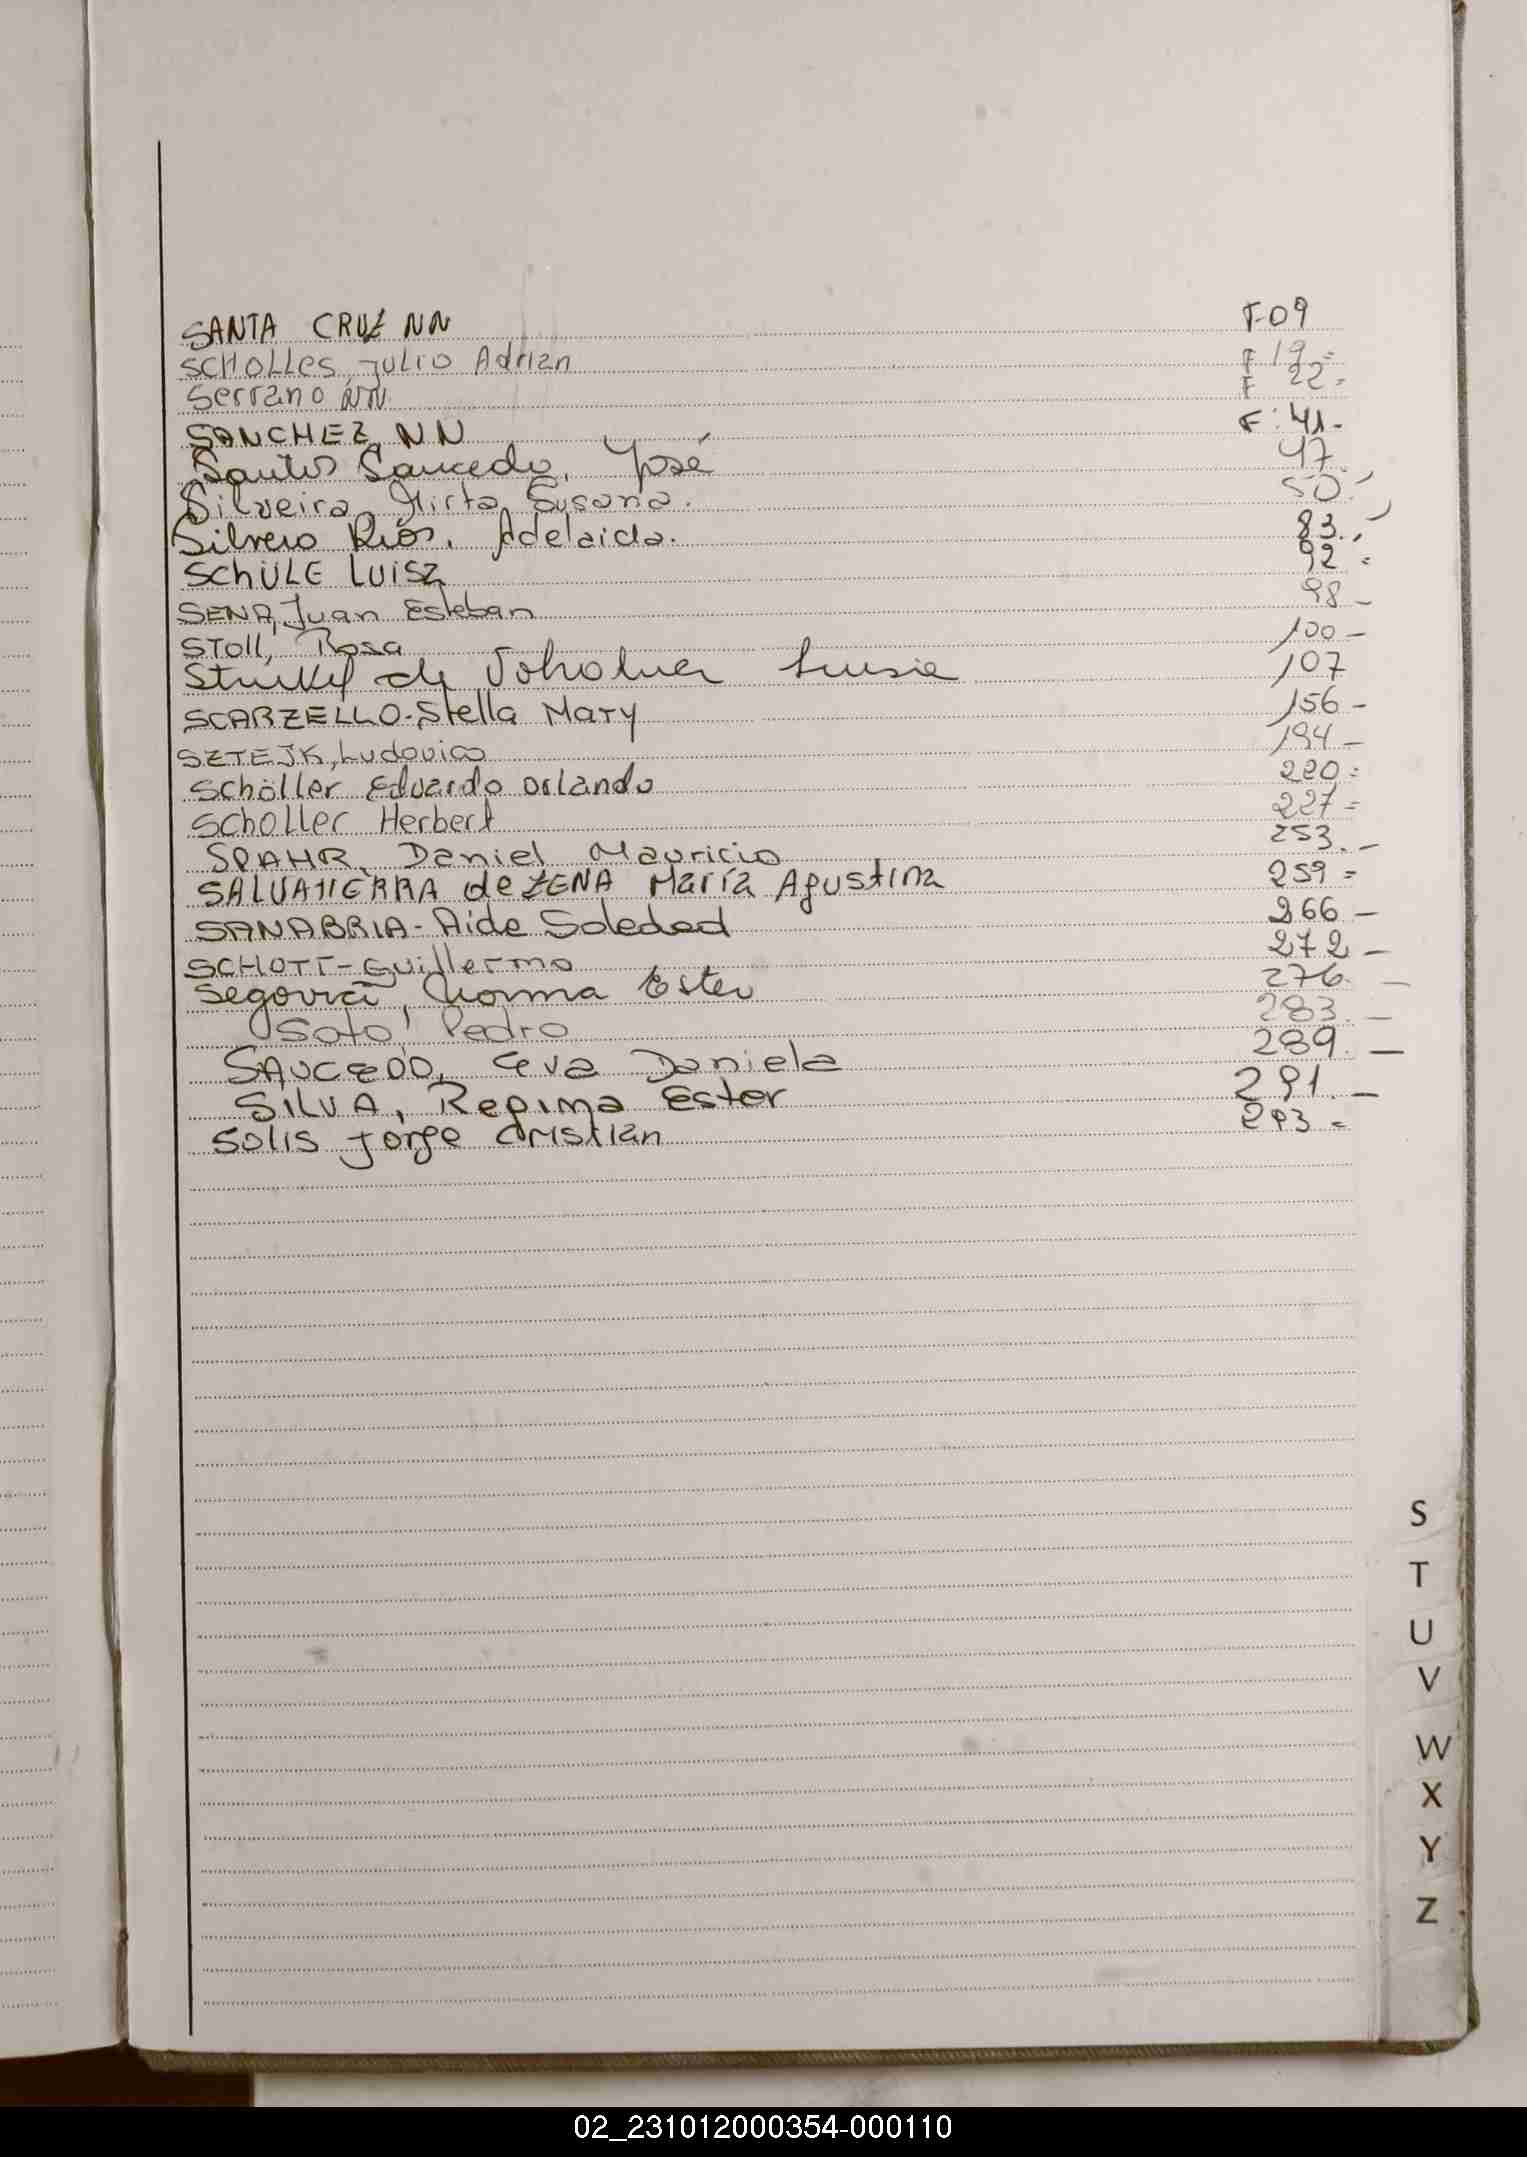 SANTA CRUZ NN F-09
SCHOLLES, Julio Adrian F 19=
Serrano NN F 22=
SANCHEZ, NN F: 41-
Santos Saucedo, José 47.
Silveira, Mirta Susana. 50.-
Silvero Rios, Adelaida. 83.,-
SChÜLE LUISA 92 =
SENA, Juan Esteban 98 -
STOLL, Rosa 100 -
de Luisa 107
SCARZELLO-Stella Mary 156 -
SZTEJK, Ludovico 194 -
Schöller Eduardo Orlando 220=
Scholler Herbert 227=
SPAHR, Daniel Mauricio 253.-
SALVATIERRA de ZENA María Agustina 259=
SANABRIA-Aide Soledad 266 -
SCHOTT-Guillermo 272 -
Segovia, Norma Ester 276. -
Soto, Pedro 283. -
SAUCEDO, Eva Daniela 289. -
SILVA, Regina Ester 291. -
SOLIS Jorge Cristian 293 =
S
T
U
V
W
X
Y
Z
02_231012000354-000110